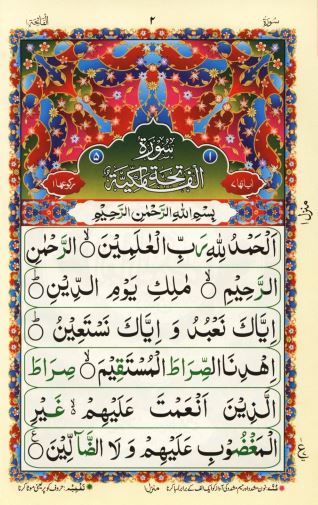 سُورَة ٢ اَلْفَاتِحَة ١
سُوْرَةُ
٥ ١
الْفَاتِحَةِ مَكِّيَّةٌ
اٰيَاتُهَا ٧ رُكُوْعُهَا ١
بِسْمِ اللّٰهِ الرَّحْمٰنِ الرَّحِيْمِ
اَلْحَمْدُ لِلّٰهِ رَبِّ الْعٰلَمِيْنَ ۙ الرَّحْمٰنِ
الرَّحِيْمِ ۙ مٰلِكِ يَوْمِ الدِّيْنِ ؕ
اِيَّاكَ نَعْبُدُ وَ اِيَّاكَ نَسْتَعِيْنُ ؕ
اِهْدِنَا الصِّرَاطَ الْمُسْتَقِيْمَ ۙ صِرَاطَ
الَّذِيْنَ اَنْعَمْتَ عَلَيْهِمْ ۙ غَيْرِ
الْمَغْضُوْبِ عَلَيْهِمْ وَ لَا الضَّآلِّيْنَ
منزل ١
ع
منزل ١